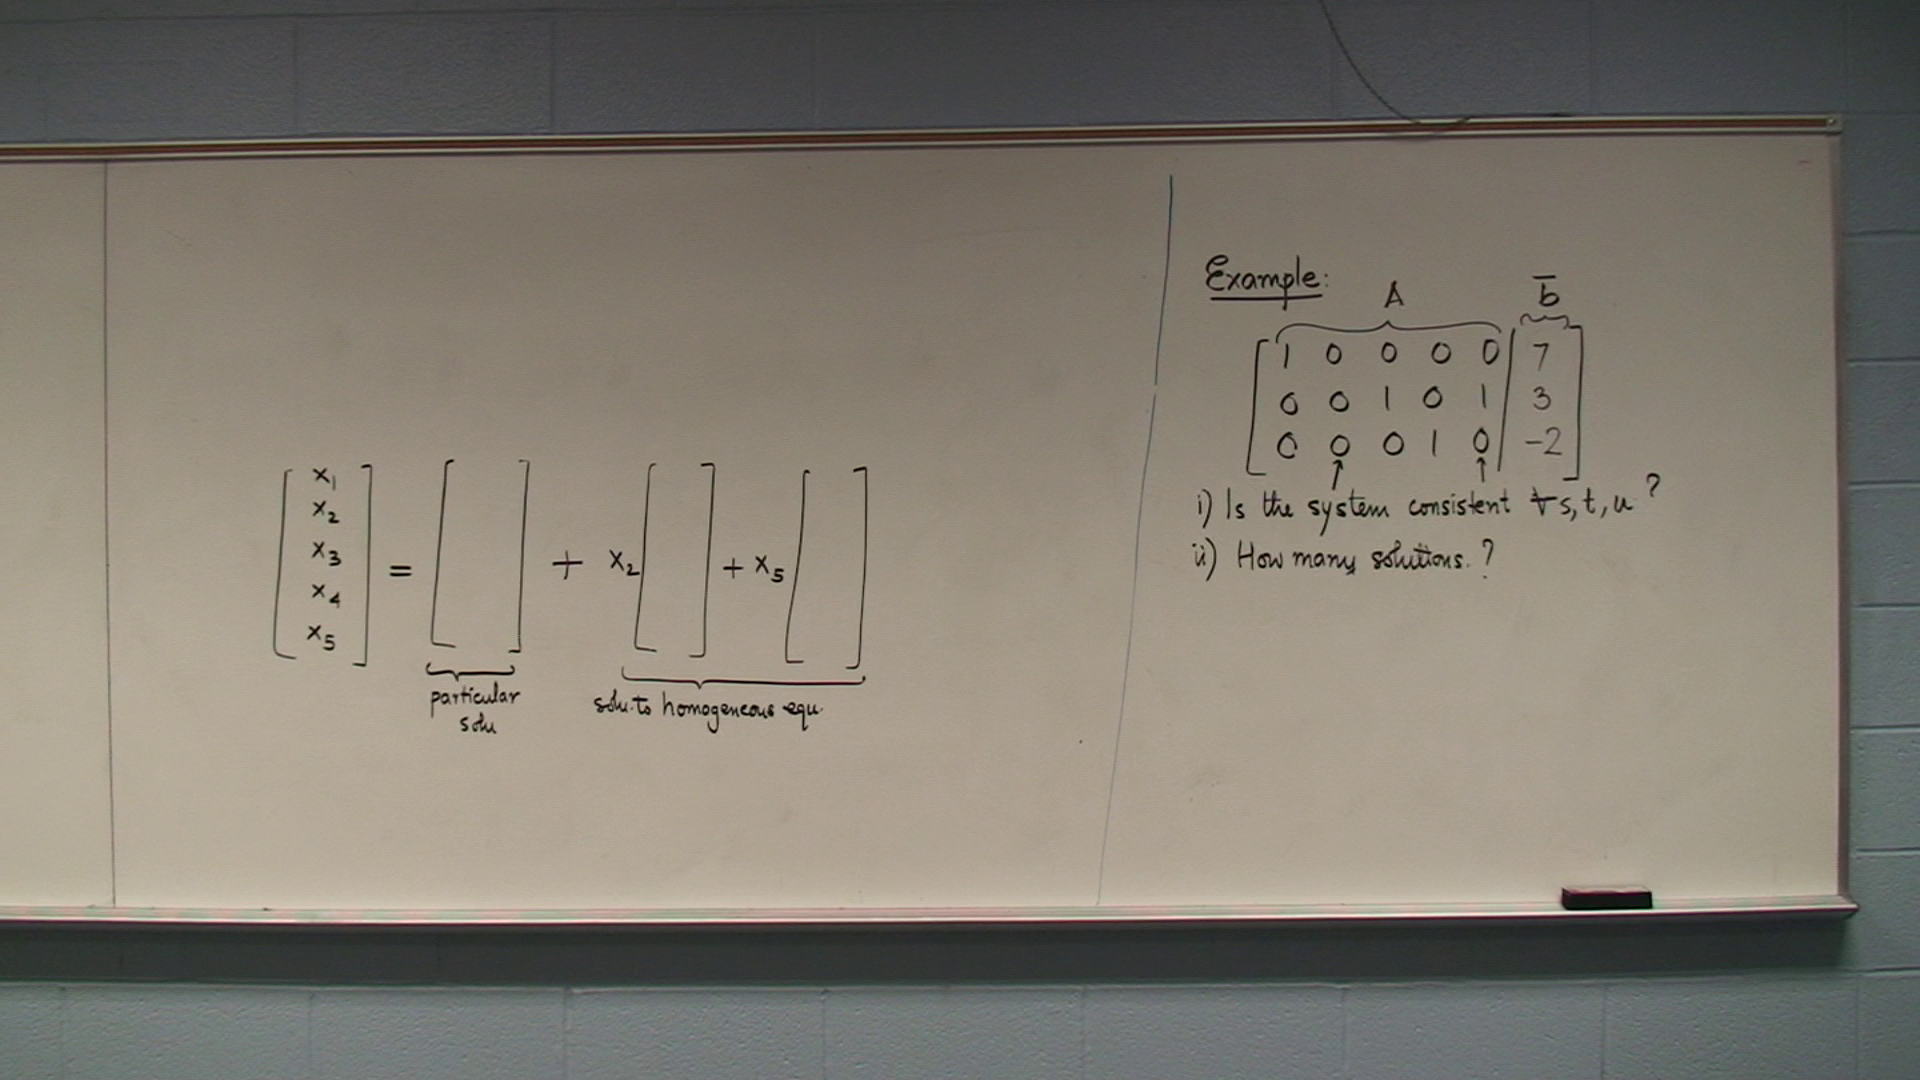 [x₁ x₂ x₃ x₄ x₅] = [ ] + x₂ [ ] + x₅ [ ]
particular
solu
solu. to homogeneous equ.
Example:
A b̄
[ 1 0 0 0 0 | 7 ]
[ 0 0 1 0 1 | 3 ]
[ 0 0 0 1 0 | -2 ]
↑ ↑
i) Is the system consistent ∀ s, t, u ?
ii) How many solutions. ?